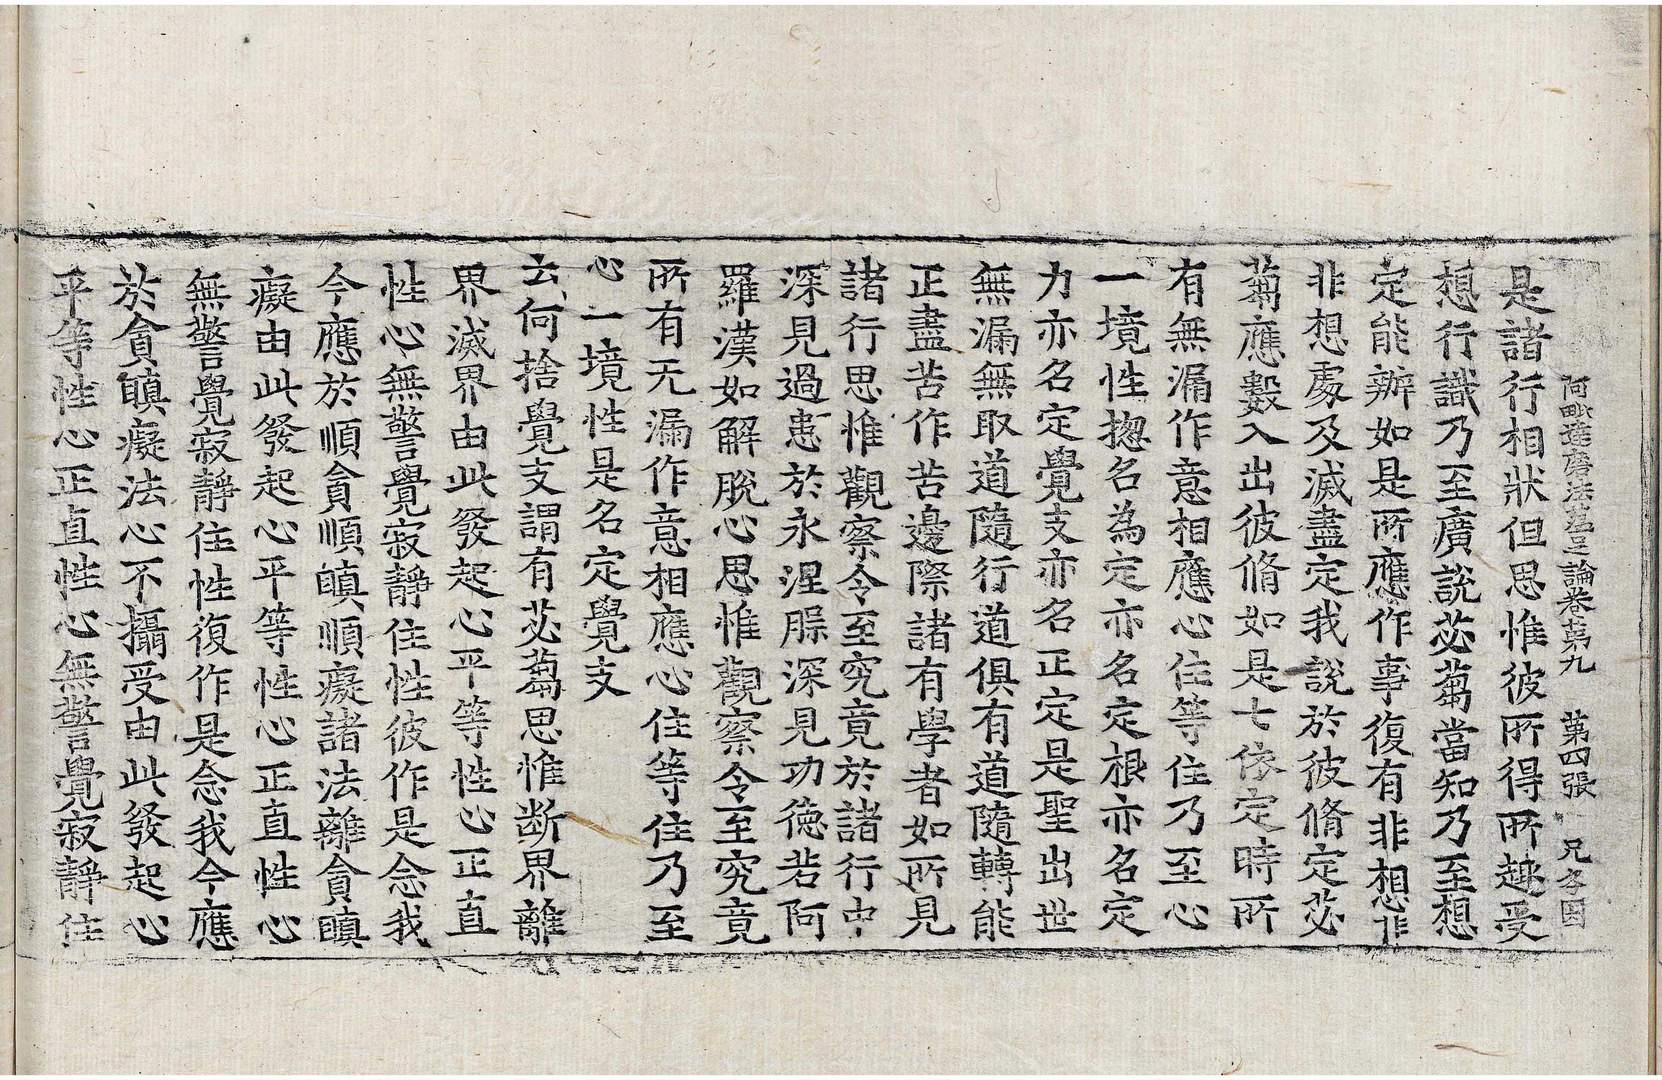 阿毗達磨法蘊足論卷第九 第四張 兄
是諸行相狀但思惟彼所得所趣受
想行識乃至廣說苾蒭當知乃至想
定能辦如是所應作事復有非想非
非想處及滅盡定我說於彼脩定苾
蒭應數入出彼脩如是七依定時所
有無漏作意相應心住等住乃至心
一境性揔名為定亦名定根亦名定
力亦名定覺支亦名正定是聖出世
無漏無取道隨行道俱有道隨轉能
正盡苦作苦邊際諸有學者如所見
諸行思惟觀察令至究竟於諸行中
深見過患於永涅槃深見功徳若阿
羅漢如解脫心思惟觀察令至究竟
所有无漏作意相應心住等住乃至
心一境性是名定覺支
云何捨覺支謂有苾蒭思惟断界離
界滅界由此發起心平等性心正直
性心無警覺寂靜住性彼作是念我
今應於順貪順瞋順癡諸法離貪瞋
癡由此發起心平等性心正直性心
無警覺寂靜住性復作是念我今應
於貪瞋癡法心不攝受由此發起心
平等性心正直性心無警覺寂靜住